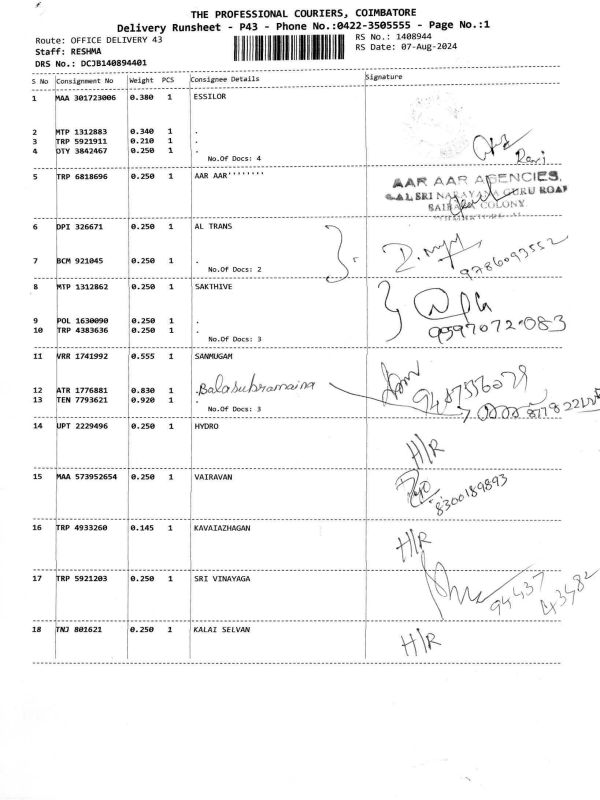 THE PROFESSIONAL COURIERS, COIMBATORE
Delivery Runsheet - P43 - Phone No.:0422-3505555 - Page No.:1
Route: OFFICE DELIVERY 43
RS No.: 1408944
Staff: RESHMA
RS Date: 07-Aug-2024
DRS No.: DCJB140894401
S No Consignment No Weight PCS Consignee Details Signature
1 MAA 301723006 0.380 1 ESSILOR
2 MTP 1312883 0.340 1 .
3 TRP 5921911 0.210 1 .
4 DTY 3842467 0.250 1 .
No.Of Docs: 4
Ravi
5 TRP 6818696 0.250 1 AAR AAR''''''''
AAR AAR AGENCIES,
SRI NARAYANA GURU ROAD
SAIBABA COLONY
6 DPI 326671 0.250 1 AL TRANS
7 BCM 921045 0.250 1 .
No.Of Docs: 2
9786093552
8 MTP 1312862 0.250 1 SAKTHIVE
9 POL 1630090 0.250 1 .
10 TRP 4383636 0.250 1 .
No.Of Docs: 3
9597072083
11 VRR 1741992 0.555 1 SANMUGAM
12 ATR 1776881 0.830 1 . Balasubramaina
13 TEN 7793621 0.920 1 .
No.Of Docs: 3
9487556029
14 UPT 2229496 0.250 1 HYDRO
H/R
15 MAA 573952654 0.250 1 VAIRAVAN
8300189893
16 TRP 4933260 0.145 1 KAVAIAZHAGAN
H/R
17 TRP 5921203 0.250 1 SRI VINAYAGA
94437
43482
18 TNJ 801621 0.250 1 KALAI SELVAN
H/R